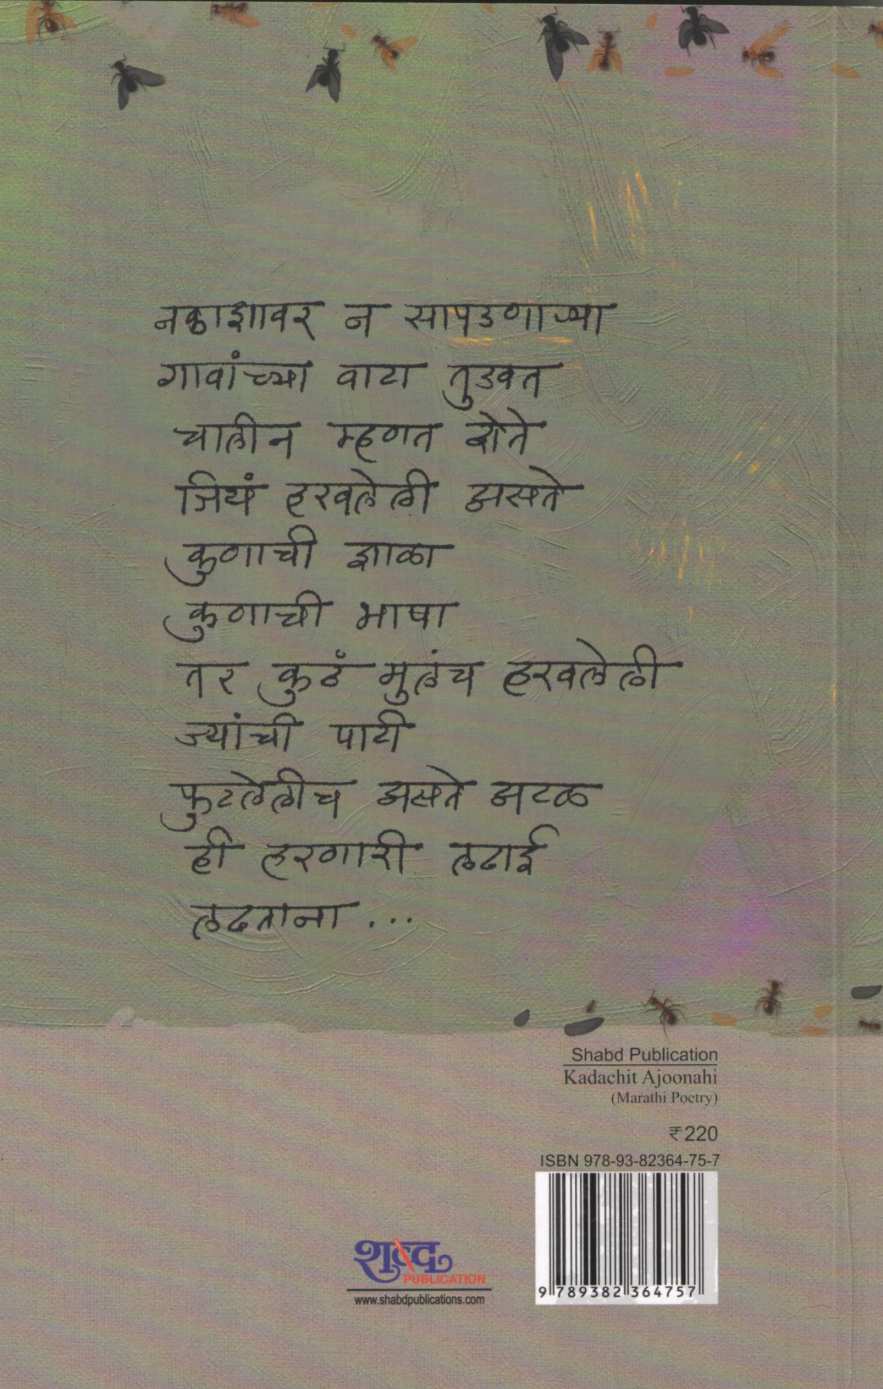 नकाशावर न सापडणाऱ्या
गावांच्या वाटा तुडवत
चालीन म्हणत होते
जिथं हरवलेली असते
कुणाची शाळा
कुणाची भाषा
तर कुठं मुलंच हरवलेली
ज्यांची पाटी
फुटलेलीच असते अटळ
ही हरणारी लढाई
लढताना ...
Shabd Publication
Kadachit Ajoonahi
(Marathi Poetry)
₹ 220
ISBN 978-93-82364-75-7
9 789382 364757
शब्द
PUBLICATION
www.shabdpublications.com